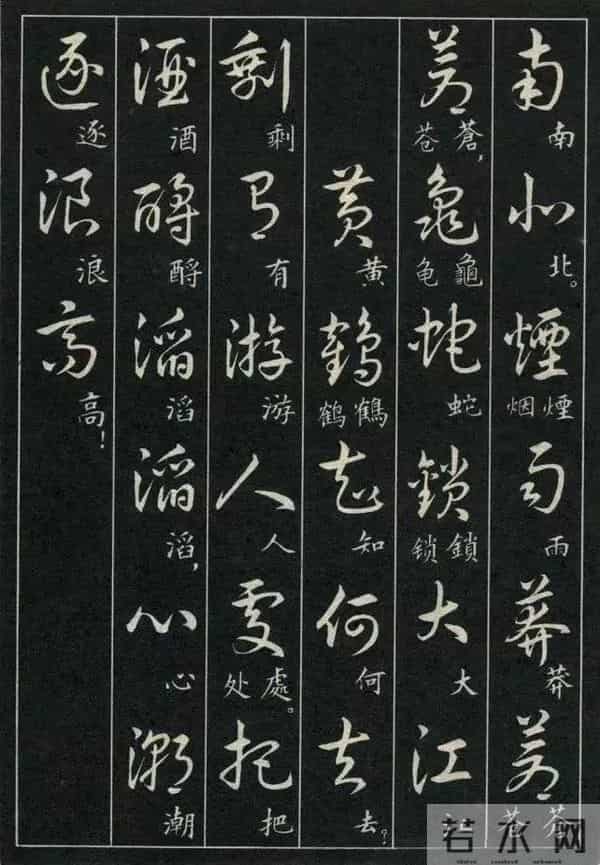 南北煙雨莽蒼
南北。煙烟雨莽蒼苍
蒼龜蛇鎖大江
蒼苍，龜龟蛇鎖锁大
黄鶴知何去
黄鶴鹤知何去？
剩有游人處把
剩有游人處处。把
酒酹滔滔心潮
酒酹滔滔，心潮
逐浪高
逐浪高！
若水网